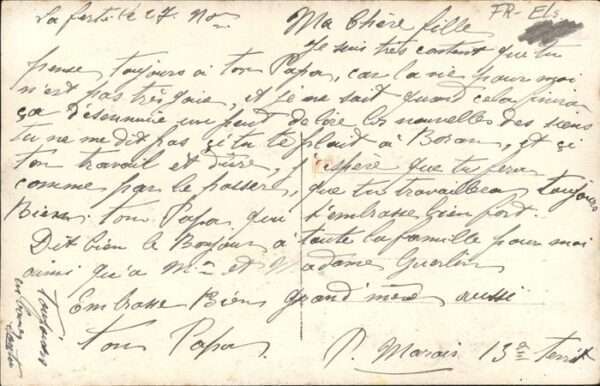 La ferté le 27 Nov
FR-Els
Ma Chère fille
Je suis très content que tu
pense toujours à ton Papa, car la vie pour moi
n'est pas très gaie, et je ne sait quand cela finira
ça désennuie un peut de lire les nouvelles des siens
tu ne me dit pas si tu te plait à Boran, et si
ton travail et dure, j'espère que tu fera
comme par le passer, que tu travaillera toujours
Bien. ton Papa qui t'embrasse bien fort.
Dit bien le Bonjour à toute la famille pour moi
ainsi qu'a Mr et Madame Guerlin
Embrasse Bien grand'mère aussi
ton Papa
P. Marais 13e territ
toujours
en bonne
santé